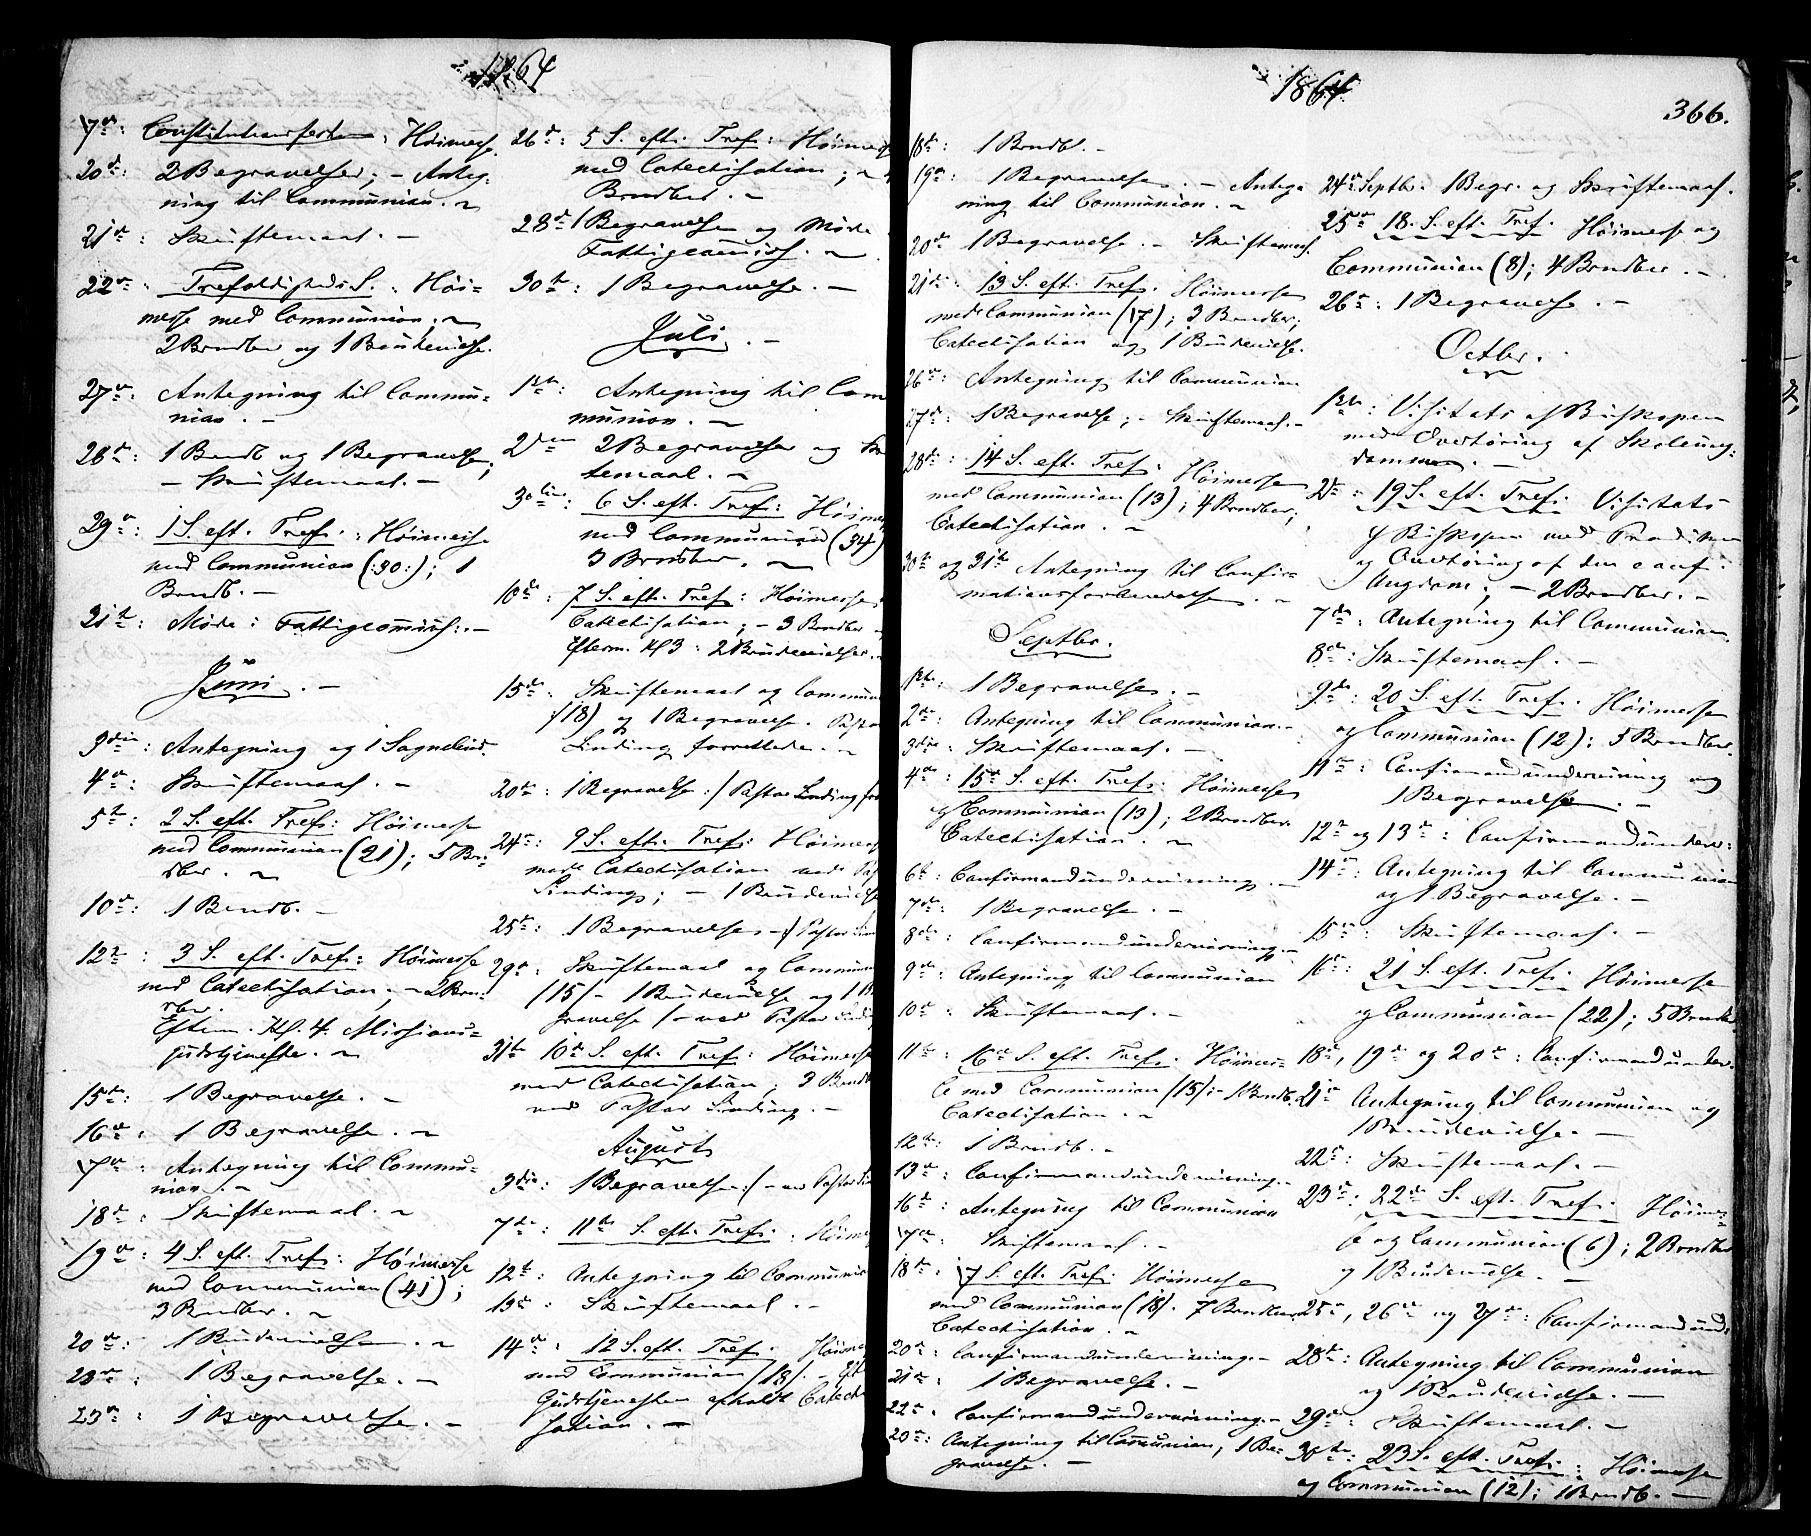 1864
17de: Constitutionsfesten: Høimesse.
20de: 2 Begravelser; – Anteg-
ning til Communion. –
21de: Skriftemaal. –
22de: Trefoldigheds S.: Høi-
messe med Communion; –
2 Brndb. og 1 Brudevielse.
27de: Antegning til Commu-
nion. –
28de: 1 Brndb og 1 Begravelse;
– Skriftemaal. –
29de: 1 S. eft. Tref.: Høimesse
med Communion (:30:); 1
Brndb. –
31te: Møde i Fattigcomiss:. –
Juni. –
3die: Antegning og 1
4de: Skriftemaal. –
5te: 2 S. eft. Tref: Høimesse
med Communion (21); 5 Brn-
dber. –
10de: 1 Brndb. –
12te: 3 S. eft. Tref.: Høimesse
med Catechisation; – 2 Brn-
dber.
Efterm. Kl. 4. Missions-
gudstjeneste. –
15de: 1 Begravelse. –
16de: 1 Begravelse. –
17de: Antegning til Commu-
nion. –
18de: Skriftemaal. –
19de: 4 S. eft. Tref.: Høimesse
med Communion (41);
3 Brndber. –
20de: 1 Brudevielse. –
23de: 1 Begravelse. –
25de: 1 Begravelse. –
26de: 5 S. eft. Tref: Høimesse
med Catechisation; –
Brndber. –
28de: 1 Begravelse og Møde
Fattigcomiss. –
30te: 1 Begravelse. –
Juli. –
1ste: Antegning til Com
munion. –
2den 2 Begravelser og
temaal. –
3die: 6 S. eft. Tref: Høimes
med Communion (34)
3 Brndber. –
10de: 7 S. eft. Tref: Høimesse
Catechisation; – 3 Brndber –
Efterm. Kl 3: 2 Brudevielser. –
15de: Skriftemaal og Commun
(18) og 1 Begravelse. Pastor
Sinding forrettede. –
20de: 1 Begravelse :/ Pastor Sinding
24de: 9 S. eft. Tref: Høimes
med Catechisation ved
Sinding; – 1 Brudevielse
25de: 1 Begravelse –/ Pastor
29de: Skriftemaal og Commun
(15) – 1 Brudevielse og 1
gravelse /– ved Pastor
31te: 10de S. eft. Tref: Høimesse
med Catechisation; 3 Brndb
ved Pastor Sinding. –
August
3die: 1 Begravelse :/– ved Pastor
7de: 11te S. eft. Tref.: Høimes
12te: Antegning til Communio
13de: Skriftemaal. –
14de: 12 S. eft. Tref. Høimes
med Communion (18). –
Gudstjenesten afholdt Catech
sation. –
1864
366.
18de: 1 Brndb. –
19de: 1 Begravelse. – Anteg
ning til Communion. –
20de 1 Begravelse. – Skriftemaal.
21de: 13 S. eft. Tref. Høimesse
med Communion (17); 3 Brndber;
Catechisation og 1 Brudevielse.
26de: Antegning til Communion
27de: 1 Begravelse; – Skriftemaal. –
28de: 14 S. eft. Tref. Høimesse
med Communion (13); 4 Brndber;
Catechisation. –
30te og 31te Antegning til Confir-
mationsforberedelse. –
Septbr.
1ste: 1 Begravelse. –
2den: Antegning til Communion. –
3die: Skriftemaal. –
4de: 15de S. eft. Tref.: Høimesse
og Communion (13); 2 Brndber.
Catechisation. –
6te: Confirmandundervisning. –
7de: 1 Begravelse. –
8de: Confirmandundervisning. –
9de: Antegning til Communion
10de: Skriftemaal. –
11te: 16de S. eft. Tref. Høimes-
se med Communion (15): – 1 Brndb.
Catechisation. –
12te: 1 Brndb. –
13de: Confirmandundervisning. –
16de: Antegning til Communion
17de: Skriftemaal. –
18de: 17 S. eft. Tref: Høimesse
med Communion (18). 7 Brndber.
Catechisation. –
20de: Confirmandundervisning. –
21de: 1 Begravelse. –
22de: Confirmandundervisning. –
23de: Antegning til Communion, 1 Be-
gravelse. –
24de Septbr. 1 Begr. og Skriftemaal.
25de 18. S. eft. Tref. Høimesse og
Communion (8); 4 Brndber. –
26de: 1 Begravelse. –
Octbr.
1ste: Visitats af Biskopen
med Overhøring af Skoleung-
dommen. –
2den: 19 S. eft. Tref. Visitats
af Biskopen med Prædiken
og Overhøring af den conf.
Ungdom; – 2 Brndber. –
7de: Antegning til Communion.
8de: Skriftemaal. –
9de: 20 S. eft. Tref. Høimesse
og Communion (12): 3 Brndber.
11te: Confirmandundervisning og
1 Begravelse. –
12te og 13de: Confirmandunderv:
14de: Antegning til Communion
og 1 Begravelse. –
15de: Skriftemaal. –
16de: 21 S. eft. Tref: Høimesse
og Communion (22); 5 Brndb
18de, 19de og 20de: Confirmandunder.
21de Antegning til Communion og
1 Brudevielse. –
22de: Skriftemaal. –
23de: 22de S. eft. Tref. Høimes-
se og Communion (6); 2 Brndber
og 1 Brudevielse. –
25de, 26de og 27de: Confirmandund:
28de: Antegning til Communion
og 1 Brudevielse. –
29de: Skriftemaal. –
30te: 23 S. eft. Tref.: Høimesse
og Communion (12); 1 Brndb. –